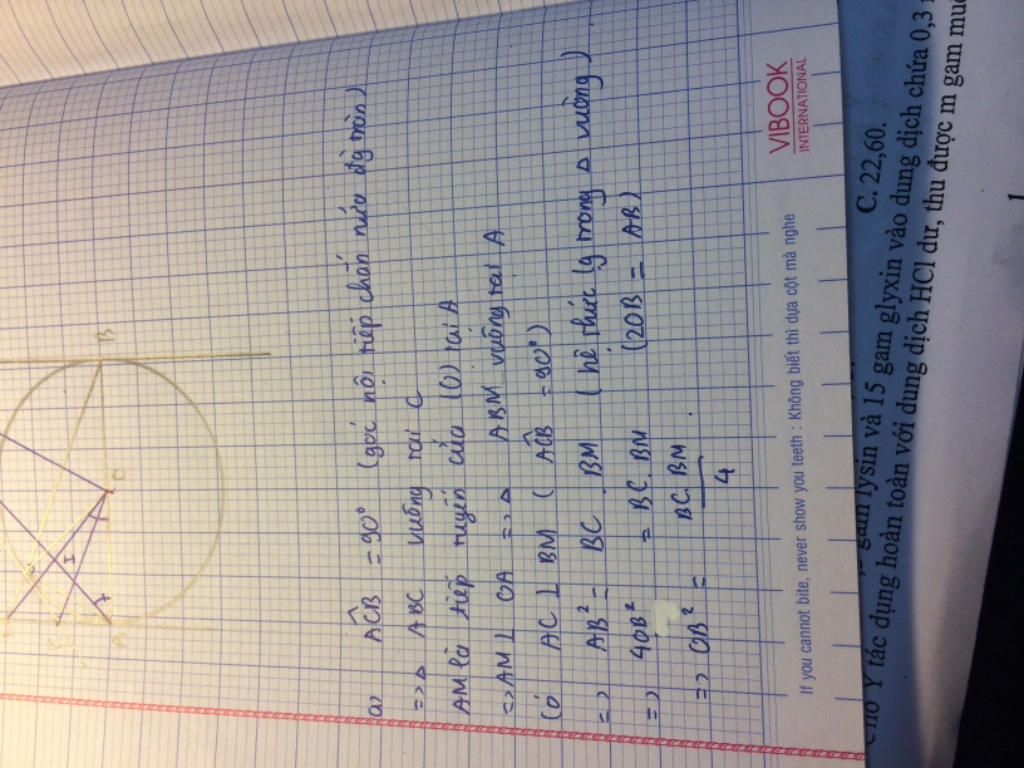 B
O
I
A
a) ACB = 90° (góc nội tiếp chắn nửa đg tròn)
=> Δ ABC vuông tại C
AM là tiếp tuyến của (O) tại A
=> AM ⊥ OA => Δ ABM vuông tại A
Có AC ⊥ BM ( ACB = 90°)
=> AB² = BC . BM (hệ thức lg trong Δ vuông)
=> 4OB² = BC. BM (2OB = AB)
=> OB² = BC. BM / 4
VIBOOK
INTERNATIONAL
If you cannot bite, never show you teeth : Không biết thì dựa cột mà nghe
C. 22,60.
gam lysin và 15 gam glyxin vào dung dịch chứa 0,3
Cho Y tác dụng hoàn toàn với dung dịch HCl dư, thu được m gam muố
1